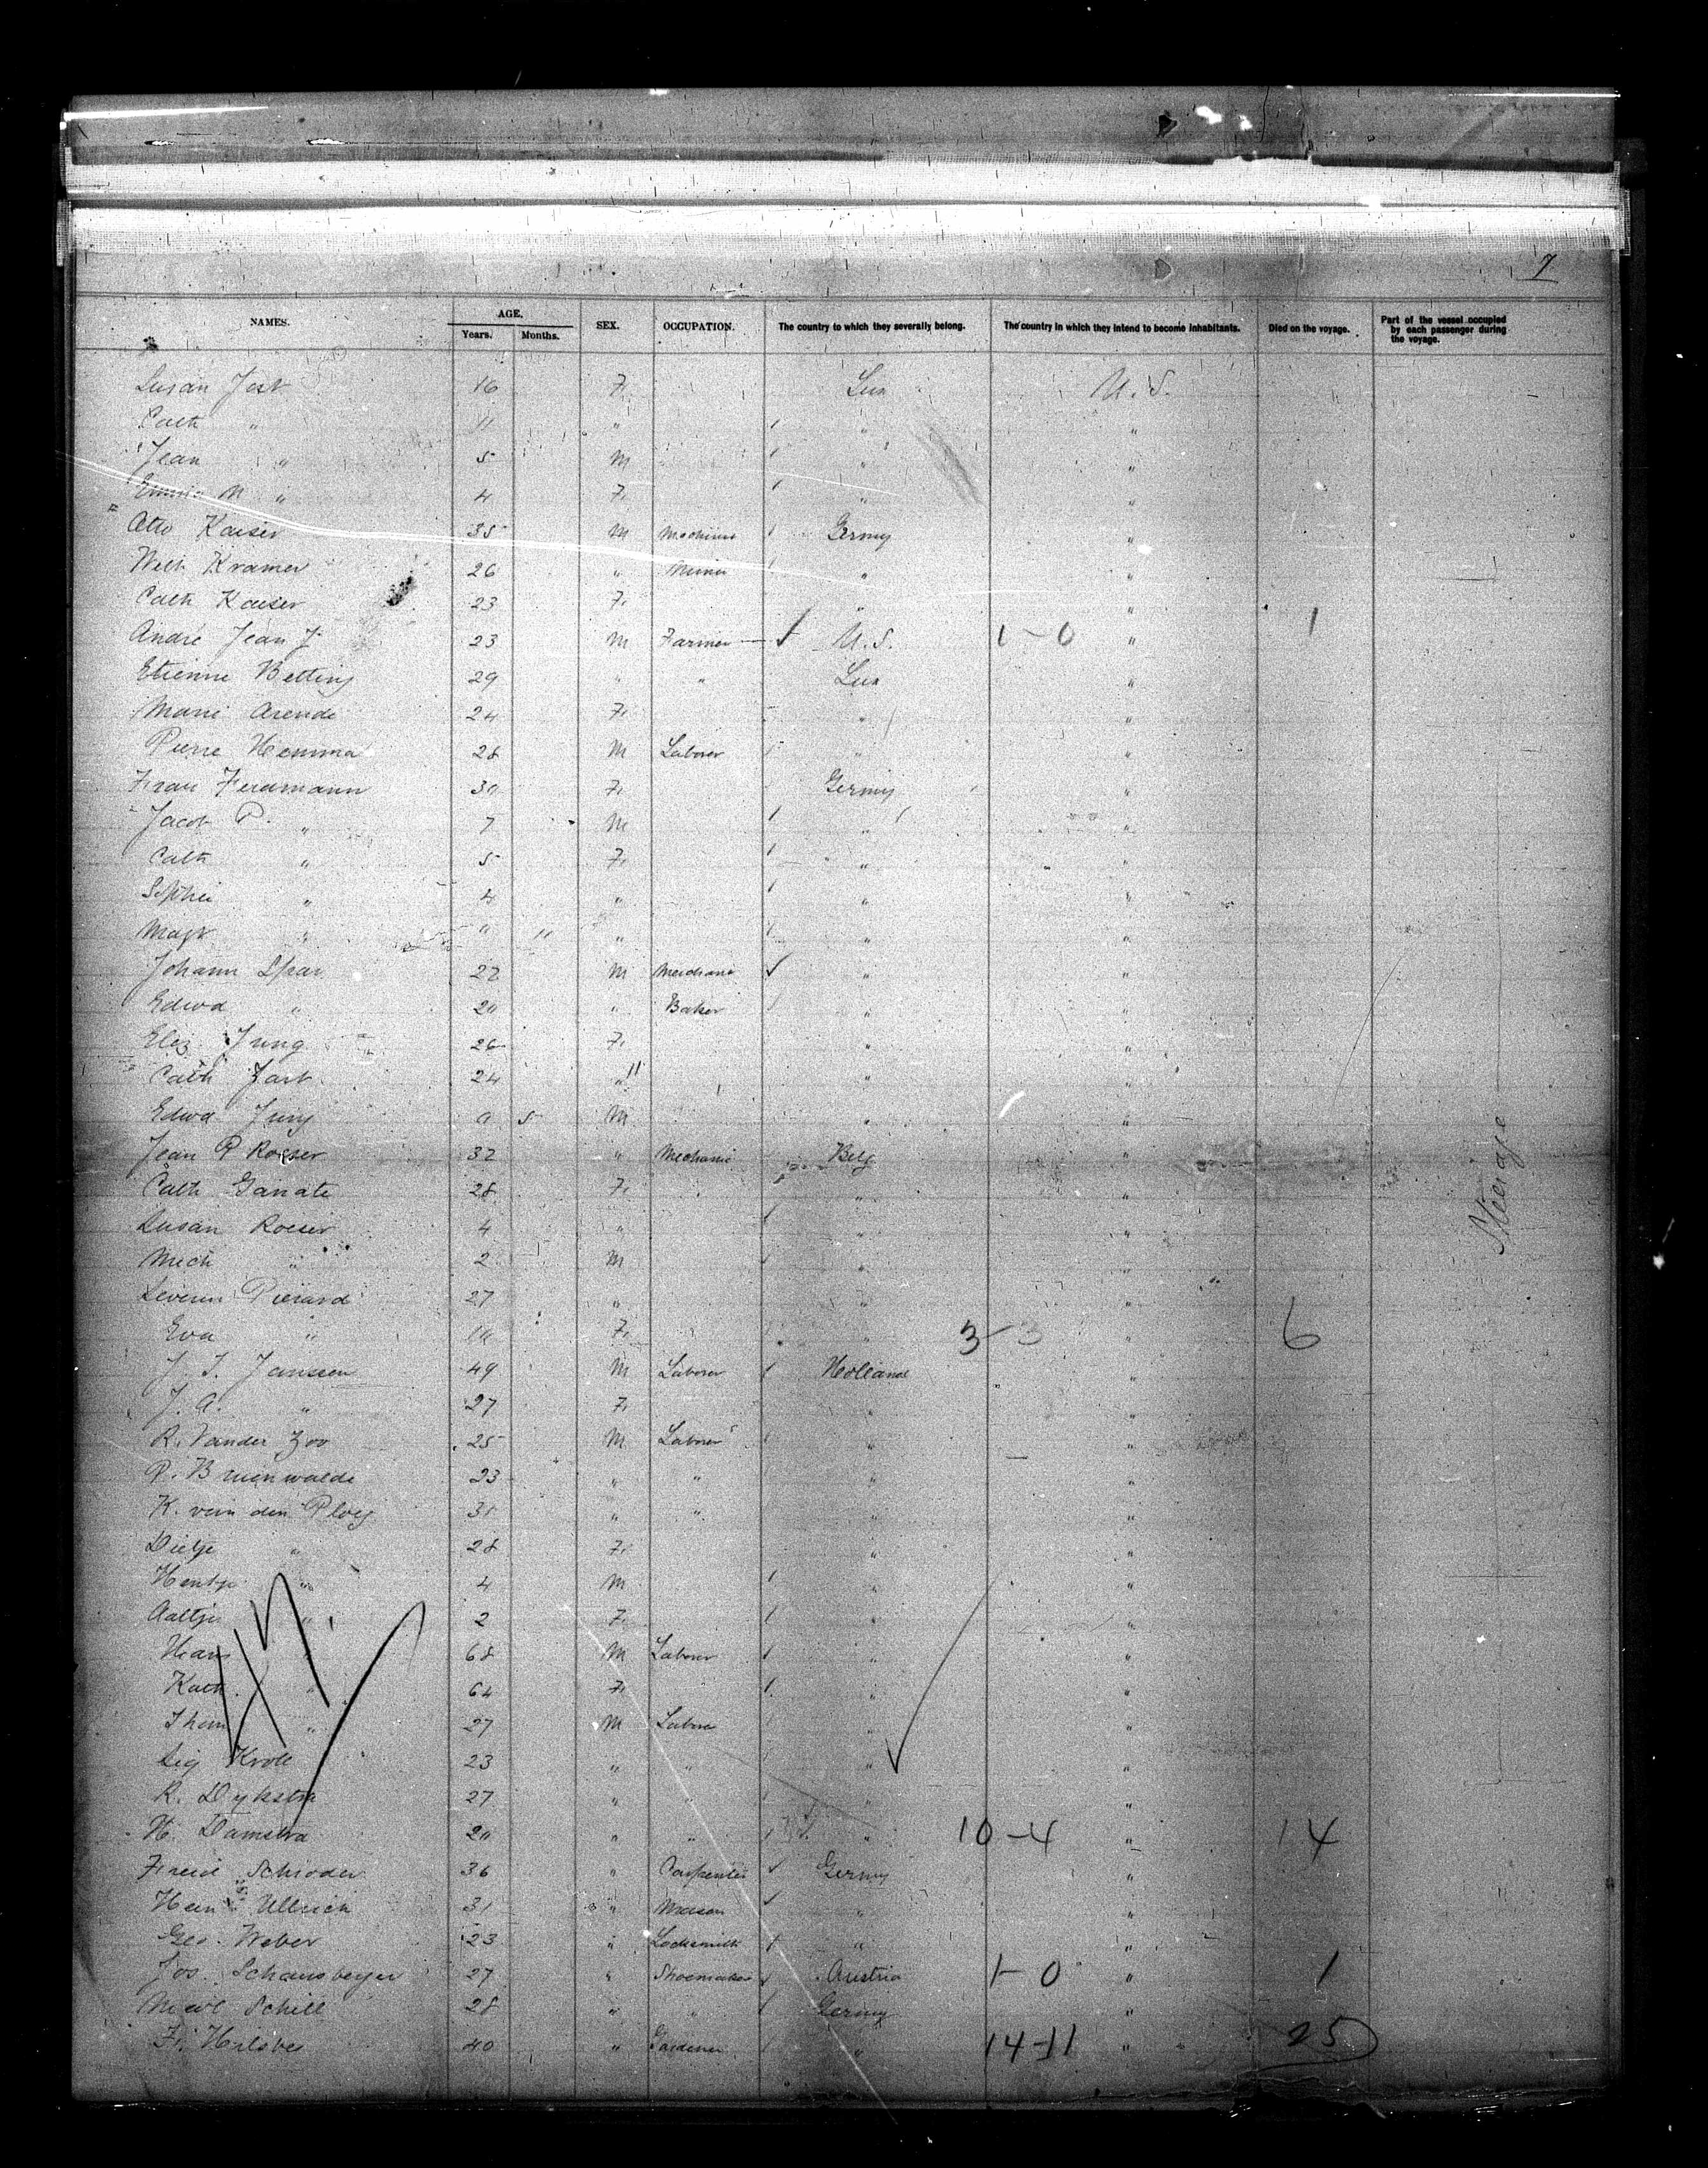 7
NAMES. AGE. Years. Months. SEX. OCCUPATION. The country to which they severally belong. The country in which they intend to become inhabitants. Died on the voyage. Part of the vessel occupied by each passenger during the voyage.
Susan Jost 16 F. Lux U. S.
Cath " 11 " " "
Jean " 5 M " "
M " 4 F. " "
Otto Kaiser 35 M Machinist Germy "
Kramer 26 " Miner " "
Cath Kaiser 23 F. " "
André Jean J 23 M Farmer U. S. 1-0 " 1
Etienne Betting 29 " " Lux "
Marie Arende 24 F. " "
Pierre Hemma 28 M Laborer " "
Frau 30 F. Germy "
Jacob P. " 7 M " "
Cath " 5 F. " "
Sophie " 4 " " "
Magr " " 11 " " "
Johann Spar 22 M Merchant " "
Edwd " 20 " Baker " "
Eliz Jung 26 F. " "
Cath 24 " 11 " "
Edwd Jung 0 5 M " "
Jean P Roeser 32 " Mechanic Belg "
Cath Ganate 28 F. " "
Susan Roeser 4 " " "
Mich " 2 M " "
Severin Pierard 27 " " "
Eva " F. " 3-3 " 6
J. J. Janssen 49 M Laborer Holland "
J. A. " 27 F. " "
R. Vander Zoo 25 M Laborer " "
P. 23 " " " "
K. van den Ploeg 31 " " " "
Dietje " 28 F. " "
" 4 M " "
Aaltje " 2 F. " "
Hans " 68 M Laborer " "
Kath. " 64 F. " "
" 27 M Laborer " "
Sig Kroll 23 " " " "
R. Dykstra 27 " " " "
H. Damstra 20 " " " 10-4 " 14
Fried Schroder 36 " Carpenter Germy "
Hein Ullrich 31 " Mason " "
Geo. Weber 23 " Locksmith " "
Jos. Schansberger 27 " Shoemaker Austria 1-0 " 1
Schill 28 " " Germy "
Fr. 40 " Gardener " 14-11 " 25
Steerage